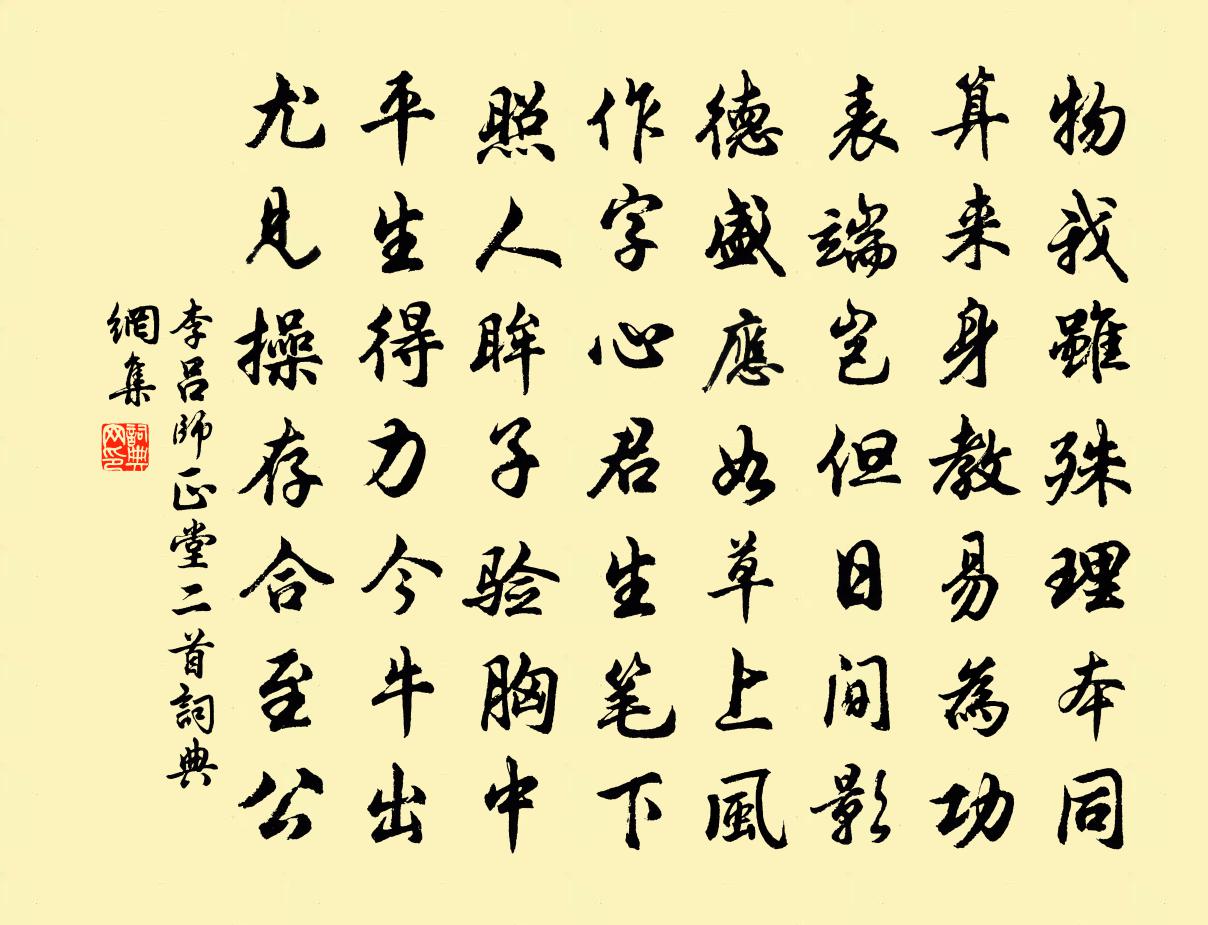 物我雖殊理本同
算来身教易為功
表端豈但日間影
德盛應如草上風
作字心君生笔下
照人眸子验胸中
平生得力今牛出
尤見操存合至公
李呂師正堂二首詞典
網集
詞典
网印